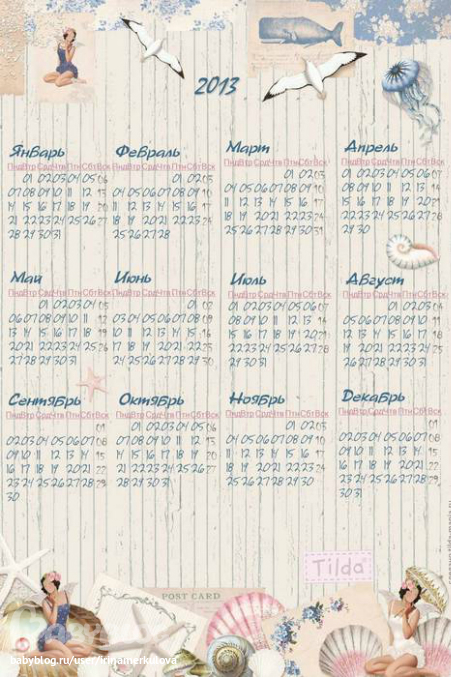 2013
Январь
Пнд Втр Срд Чтв Птн Сбт Вск
01 02 03 04 05 06
07 08 09 10 11 12 13
14 15 16 17 18 19 20
21 22 23 24 25 26 27
28 29 30 31
Февраль
Пнд Втр Срд Чтв Птн Сбт Вск
01 02 03
04 05 06 07 08 09 10
11 12 13 14 15 16 17
18 19 20 21 22 23 24
25 26 27 28
Март
Пнд Втр Срд Чтв Птн Сбт Вск
01 02 03
04 05 06 07 08 09 10
11 12 13 14 15 16 17
18 19 20 21 22 23 24
25 26 27 28 29 30 31
Апрель
Пнд Втр Срд Чтв Птн Сбт Вск
01 02 03 04 05 06 07
08 09 10 11 12 13 14
15 16 17 18 19 20 21
22 23 24 25 26 27 28
29 30
Май
Пнд Втр Срд Чтв Птн Сбт Вск
01 02 03 04 05
06 07 08 09 10 11 12
13 14 15 16 17 18 19
20 21 22 23 24 25 26
27 28 29 30 31
Июнь
Пнд Втр Срд Чтв Птн Сбт Вск
01 02
03 04 05 06 07 08 09
10 11 12 13 14 15 16
17 18 19 20 21 22 23
24 25 26 27 28 29 30
Июль
Пнд Втр Срд Чтв Птн Сбт Вск
01 02 03 04 05 06 07
08 09 10 11 12 13 14
15 16 17 18 19 20 21
22 23 24 25 26 27 28
29 30 31
Август
Пнд Втр Срд Чтв Птн Сбт Вск
01 02 03 04
05 06 07 08 09 10 11
12 13 14 15 16 17 18
19 20 21 22 23 24 25
26 27 28 29 30 31
Сентябрь
Пнд Втр Срд Чтв Птн Сбт Вск
01
02 03 04 05 06 07 08
09 10 11 12 13 14 15
16 17 18 19 20 21 22
23 24 25 26 27 28 29
30
Октябрь
Пнд Втр Срд Чтв Птн Сбт Вск
01 02 03 04 05 06
07 08 09 10 11 12 13
14 15 16 17 18 19 20
21 22 23 24 25 26 27
28 29 30 31
Ноябрь
Пнд Втр Срд Чтв Птн Сбт Вск
01 02 03
04 05 06 07 08 09 10
11 12 13 14 15 16 17
18 19 20 21 22 23 24
25 26 27 28 29 30
Декабрь
Пнд Втр Срд Чтв Птн Сбт Вск
01
02 03 04 05 06 07 08
09 10 11 12 13 14 15
16 17 18 19 20 21 22
23 24 25 26 27 28 29
30 31
Tilda
POST CARD
babyblog.ru/user/irinamerkulova